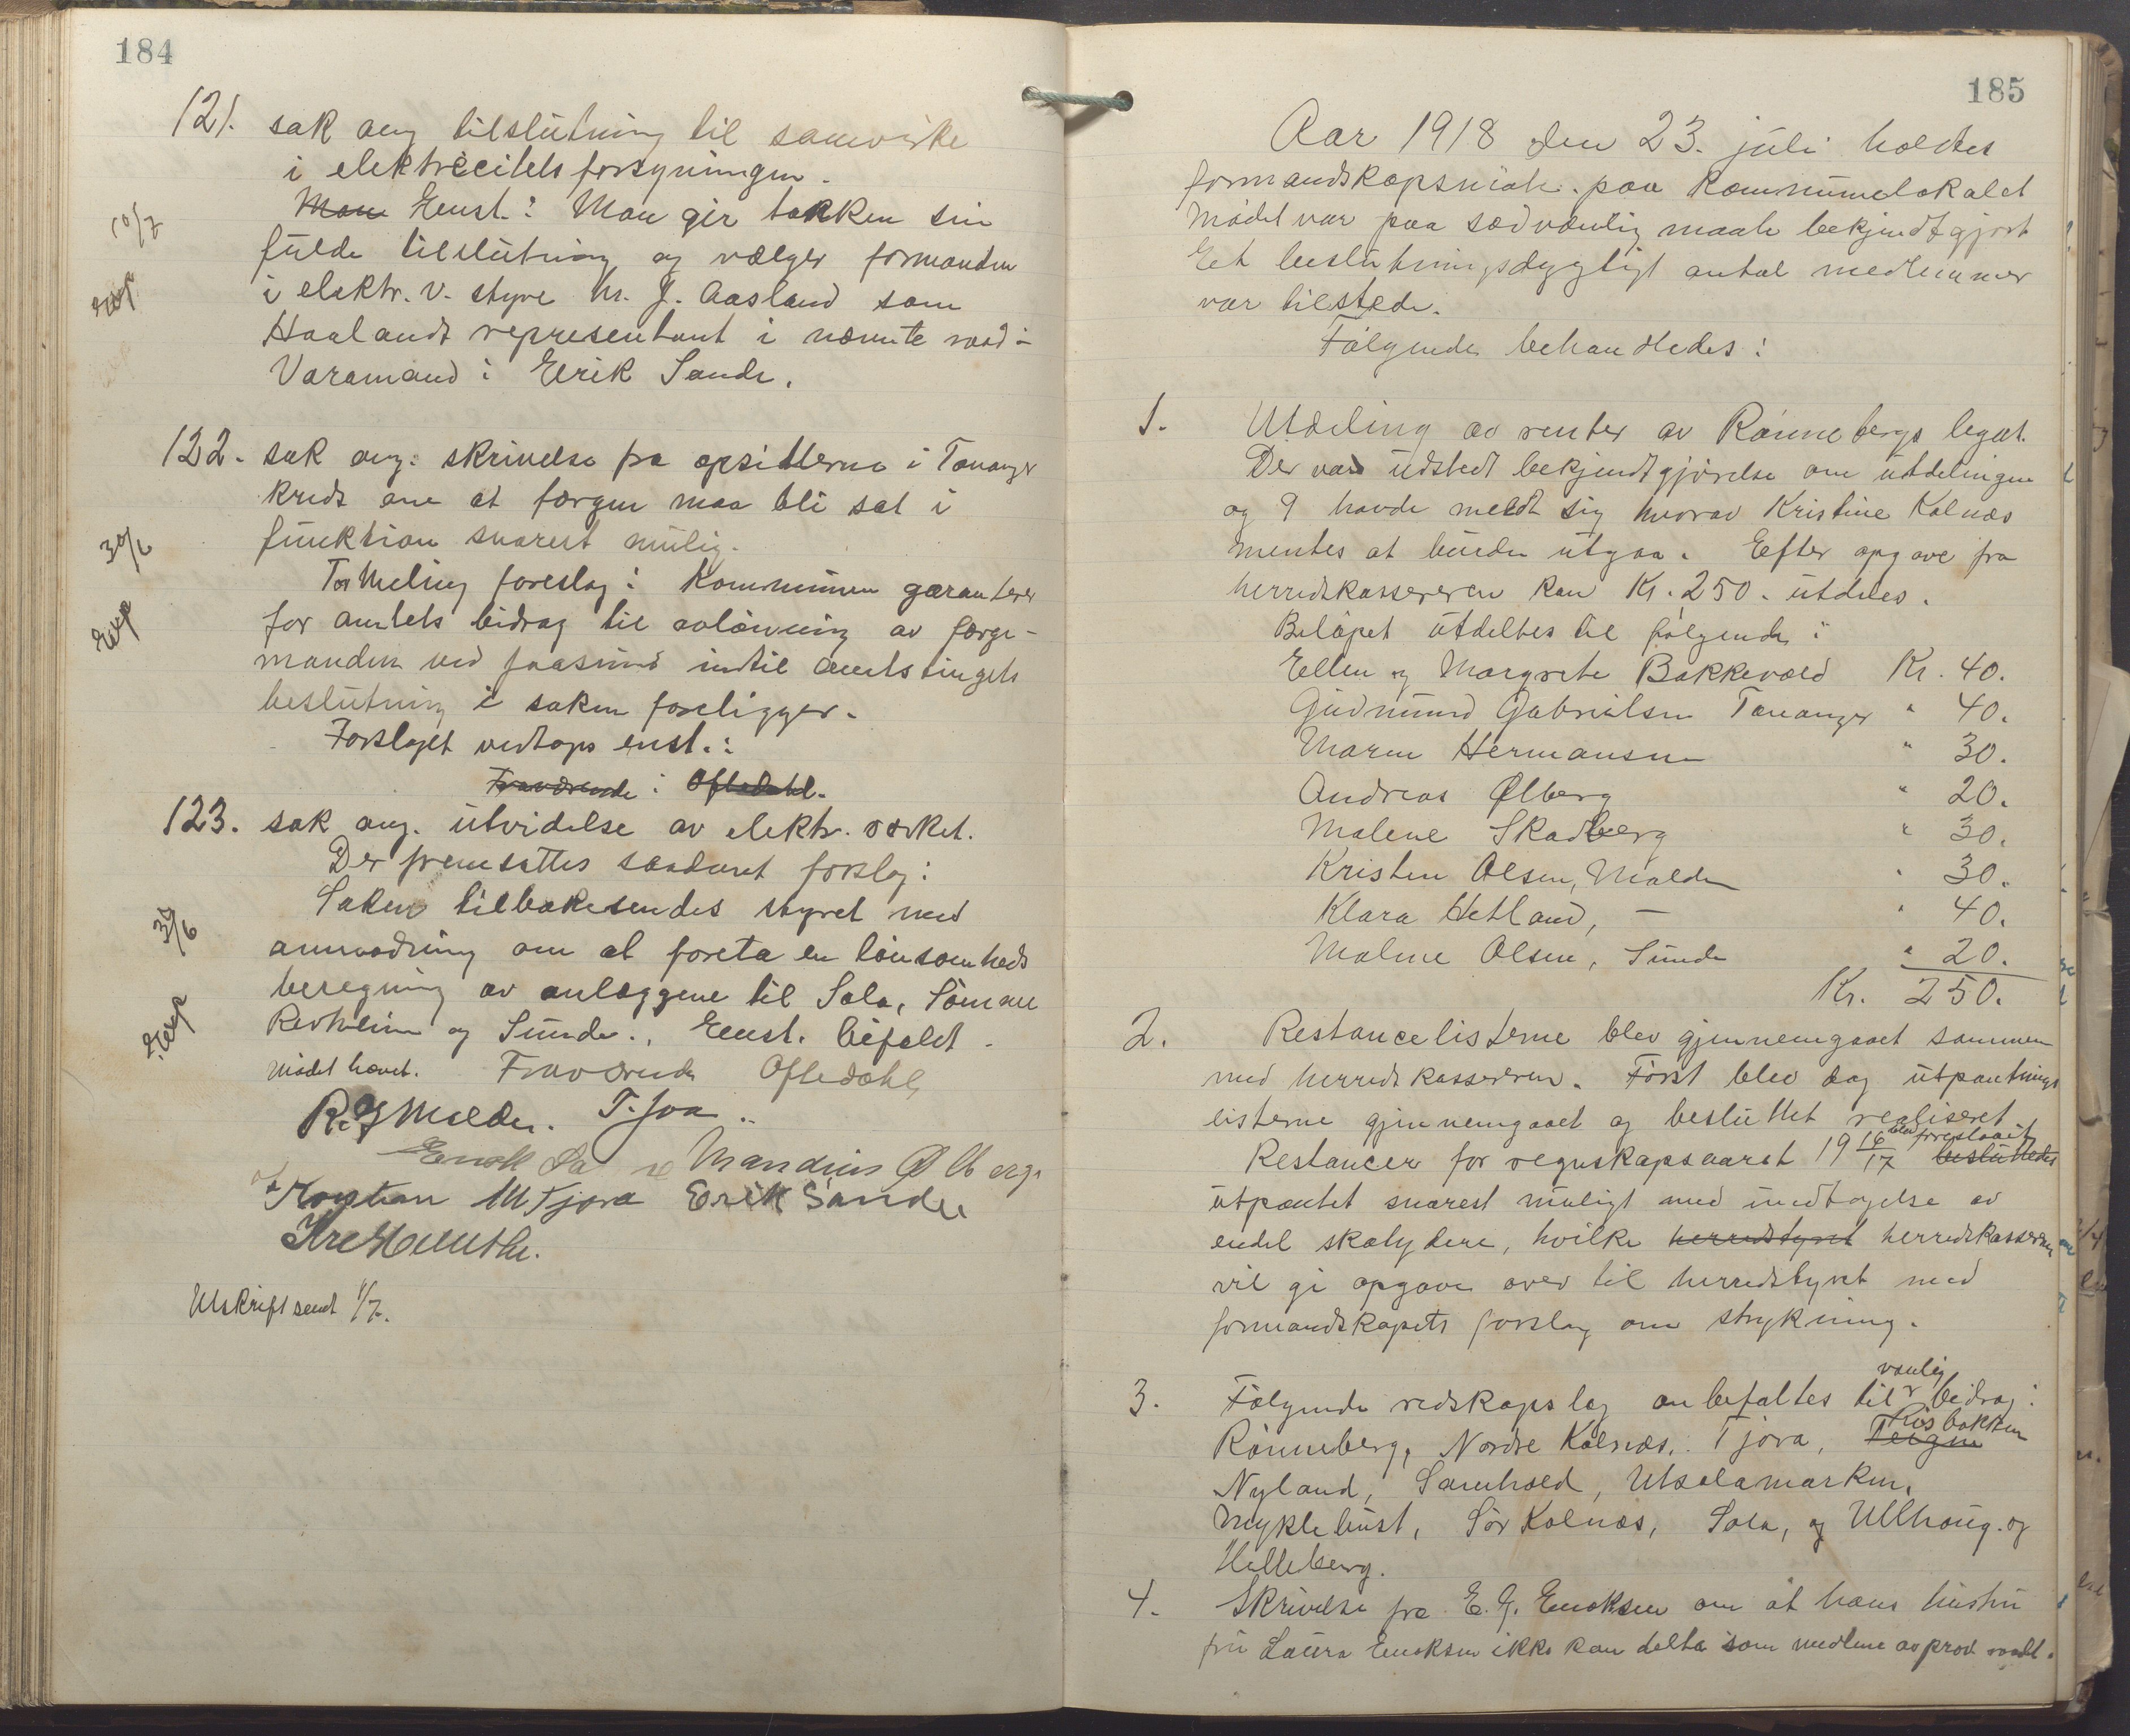 184
121. sak ang tilslutning til samvirke
i elektricitetsforsyningen.
Man Enst.: Man gir tanken sin
10/7
fulde tilslutning og vælger formanden
i elektr. v. styre hr. J. Aasland som
Exp
Haalands representant i nævnte raad.
Varamand: Eirik Sande.
122. sak ang. skrivelse fra opsitterne i Tananger
kreds om at færgen maa bli sat i
funktion snarest mulig.
30/6
Tor Meling foreslog: Kommunen garanterer
for amtets bidrag til avlønning av færge-
Exp
manden ved Jaasund indtil amtstingets
beslutning i saken foreligger.
Forslaget vedtages enst.:
Fraværende: Oftedahl.
123. sak ang. utvidelse av elektr. verket.
Der fremsattes saadant forslag:
Saken tilbakesendes styret med
30/6
anmodning om at foreta en lønsomheds
beregning av anlæggene til Sola, Sømme
Exp
Revheim og Sunde. Enst. bifaldt.
Mødet hævet. Fraværende Oftedahl,
R. G Melder. T. Joa
Enok Mandius Ølberg.
Torstan M Tjora Erik Sande
Utskrift sendt 1/7.
185
Aar 1918 den 23. juli holdtes
formandskapsmøte paa kommunelokalet
Mødet var paa sædvanlig maate bekjendtgjort
Et beslutningsdygtigt antal medlemmer
var tilstede.
Følgende behandledes:
1. Utdeling av renter av Rønnebergs legat.
Der var udstedt bekjendtgjørelse om utdelingen
og 9 havde meldt sig hvorav Kristine Kolnæs
mentes at burde utgaa. Efter opgave fra
herredskassereren kan Kr. 250. utdeles.
Beløpet utdeltes til følgende:
Ellen og Margrete Bakkevold Kr. 40.
Gudmund Gabrielsen Tananger " 40.
Maren Hermansen " 30.
Andreas Ølberg " 20.
Malene Skadberg " 30.
Kristen Olsen, Melder " 30.
Klara Hetland, — " 40.
Malene Olsen, Sunde " 20.
Kr. 250.
2. Restancelisterne blev gjennemgaaet sammen
med herredskassereren. Først blev dog utpantnings
listerne gjennemgaaet og besluttet realiseret
blev foreslaaet
Restancer for regnskapsaaret 19 16/17 besluttedes
utpantet snarest muligt med undtagelse av
endel skatydere, hvilke herredstyret herredskassereren
vil gi opgave over til herredstyret med
formandskapets forslag om strykning.
vanlig
3. Følgende redskapslag anbefaltes til bidrag:
Risbakken
Rønneberg, Nordre Kolnæs, Tjora, Teigen
Nyland, Samhold, Utsolamarken,
Myklebust, Sør Kolnæs, Sola, og Ullhaug. og
Helleberg.
4. Skrivelse fra E. G. Enoksen om at hans hustru
fru Laura Enoksen ikke kan delta som medlem av prov. raadet.